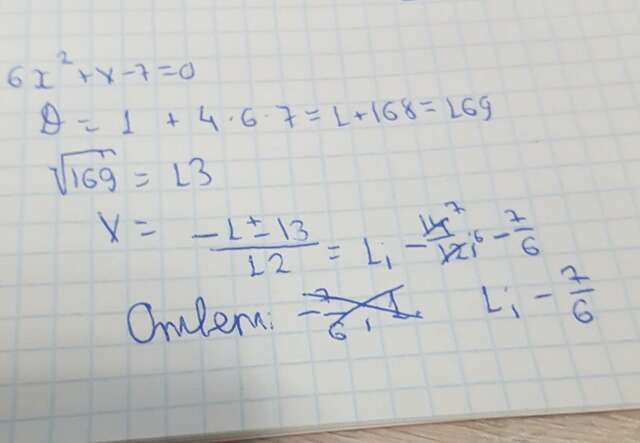 6x² + x - 7 = 0
D = 1 + 4 · 6 · 7 = 1 + 168 = 169
√169 = 13
x = (-1 ± 13)/12 = 1; -14/12; -7/6
Ответ: 1; -7/6